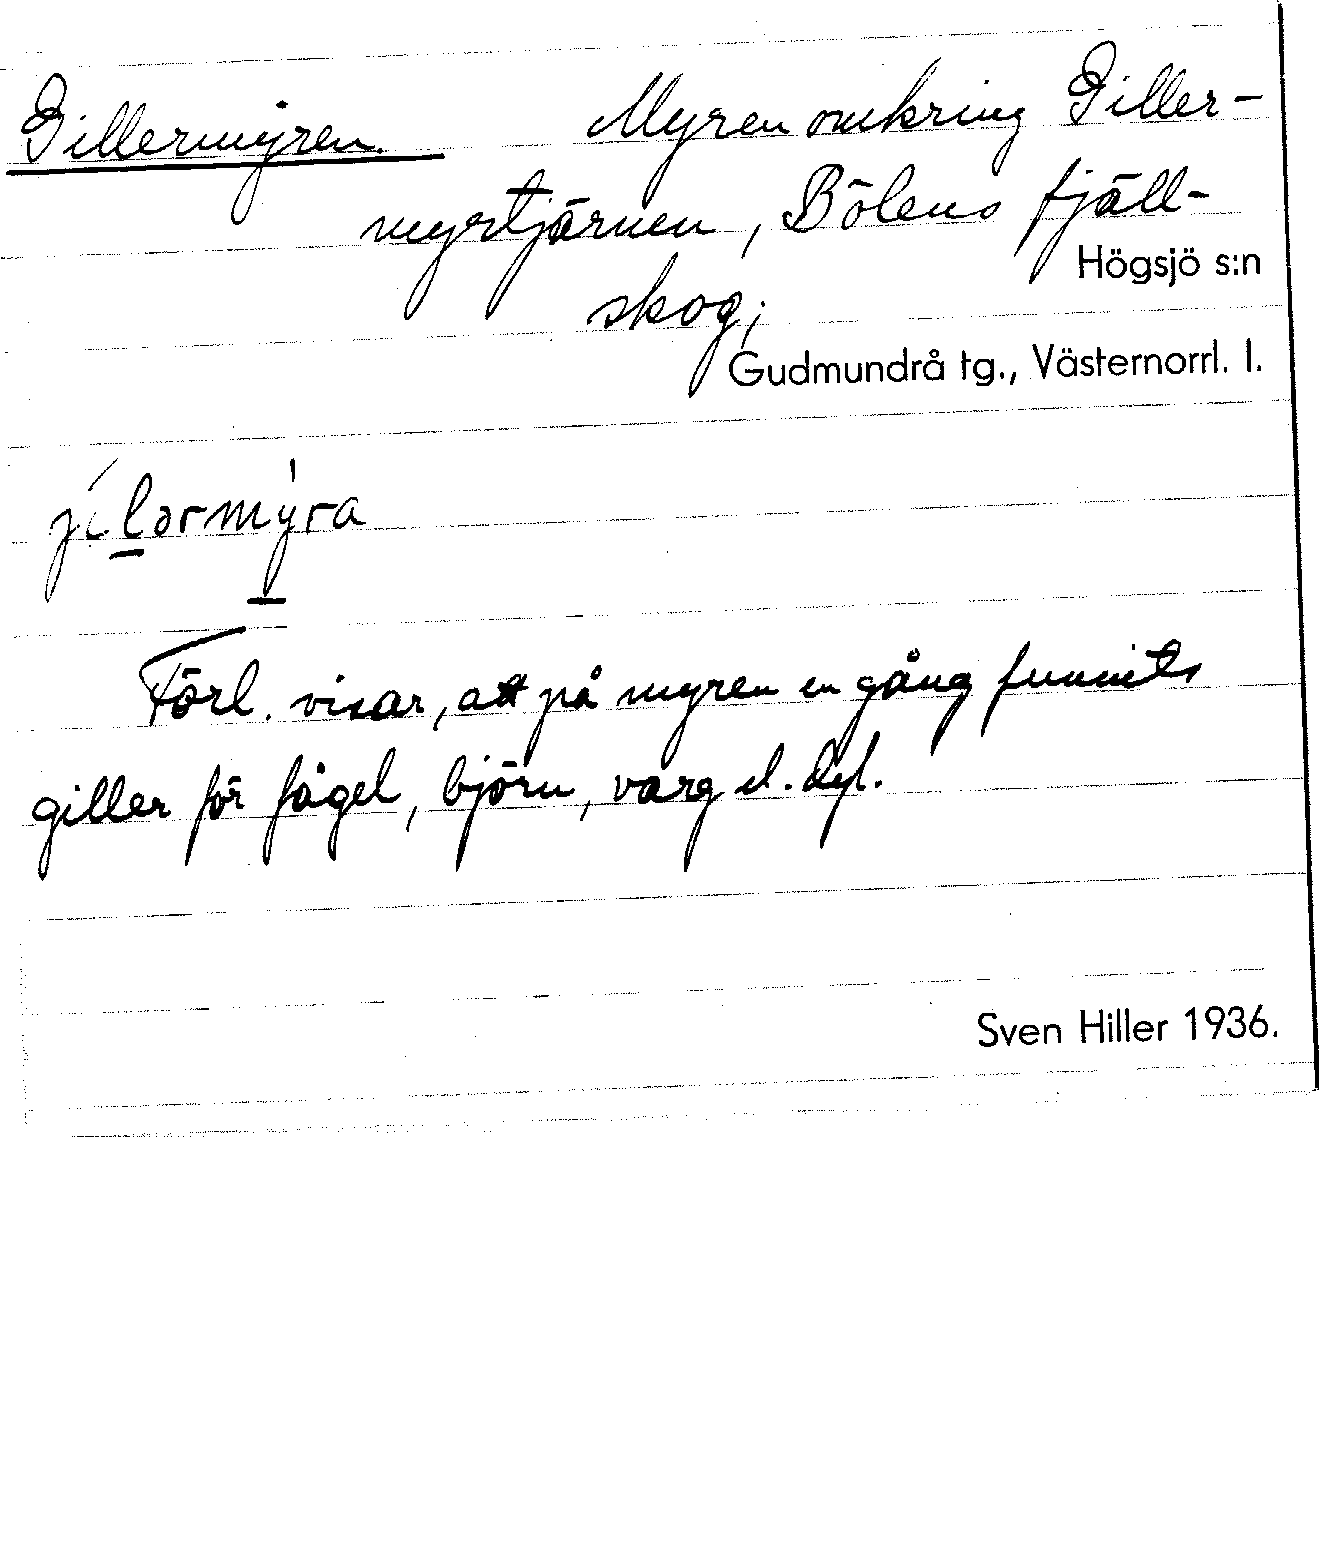 Gillermyren. Myren omkring Giller-
myrtjärnen, Bölens fjäll-
Högsjö s:n
skog;
Gudmundrå tg., Västernorrl. l.
jílərmỳra
Förl. visar, att på myren en gång funnits
giller för fågel, björn, varg el. dyl.
Sven Hiller 1936.